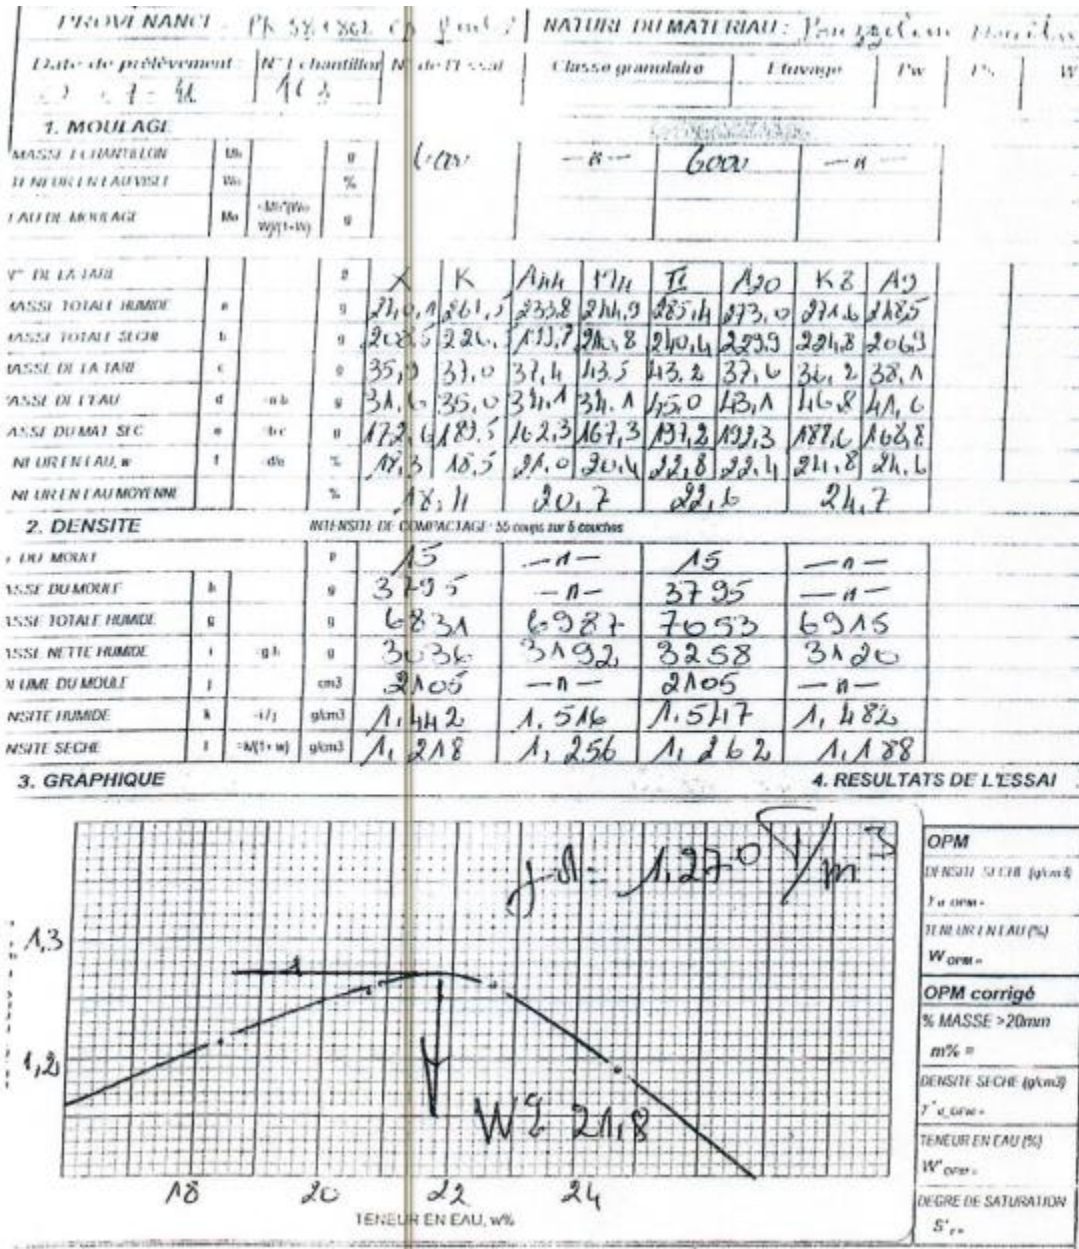 PROVENANCE : PK 58+862 NATURE DU MATERIAU : Pouzzolane
Date de prélèvement N° Echantillon N° de l'Essai Classe granulaire Etuvage Pw Ps W
163
1. MOULAGE
MASSE ECHANTILLON Mh g 6000 — n — 6000 — n —
TENEUR EN EAU VISEE Wo %
EAU DE MOULAGE Mo =Mh*(Wo- W)/(1+W) g
N° DE LA TARE g X K A44 174 A20 K8 A9
MASSE TOTALE HUMIDE a g 240,1 261,5 233,8 244,9 285,4 273,0 271,6 248,5
MASSE TOTALE SECHE b g 208,5 226,5 199,7 210,8 240,4 229,9 224,8 206,9
MASSE DE LA TARE c g 35,9 37,0 37,4 43,5 43,2 37,6 36,2 38,1
MASSE DE L'EAU d =a-b g 31,6 35,0 34,1 34,1 45,0 43,1 46,8 41,6
MASSE DU MAT SEC e =b-c g 172,6 189,5 162,3 167,3 197,2 192,3 188,6 168,8
TENEUR EN EAU, w f =d/e % 18,3 18,5 21,0 20,4 22,8 22,4 24,8 24,6
TENEUR EN EAU MOYENNE % 18,4 20,7 22,6 24,7
2. DENSITE INTENSITE DE COMPACTAGE : 55 coups sur 5 couches
DU MOULE g 15 — n — 15 — n —
MASSE DU MOULE h g 3795 — n — 3795 — n —
MASSE TOTALE HUMIDE g g 6831 6987 7053 6915
MASSE NETTE HUMIDE i =g-h g 3036 3192 3258 3120
VOLUME DU MOULE j cm3 2105 — n — 2105 — n —
DENSITE HUMIDE k =i/j g/cm3 1,442 1,516 1,547 1,482
DENSITE SECHE l =k/(1+w) g/cm3 1,218 1,256 1,262 1,188
3. GRAPHIQUE 4. RESULTATS DE L'ESSAI
γd= 1,270 T/m3
1,3
1,2
W% 21,8
18 20 22 24
TENEUR EN EAU, w%
OPM
DENSITE SECHE (g/cm3)
γd OPM=
TENEUR EN EAU (%)
W OPM =
OPM corrigé
% MASSE >20mm
m% =
DENSITE SECHE (g/cm3)
γ'd OPM=
TENEUR EN EAU (%)
W' OPM =
DEGRE DE SATURATION
S'r=